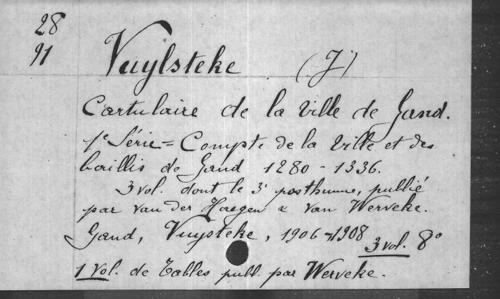 28
91
Vuylsteke (J)
Cartulaire de la Ville de Gand.
1e Série = Compte de la Ville et des
baillis de Gand 1280 - 1336.
3 vol. dont le 3e posthume, publié
par van der Haegen & van Werveke.
Gand, Vuysteke, 1906-1908
3 vol. 8o
1 vol. de Tables publ. par Werveke.